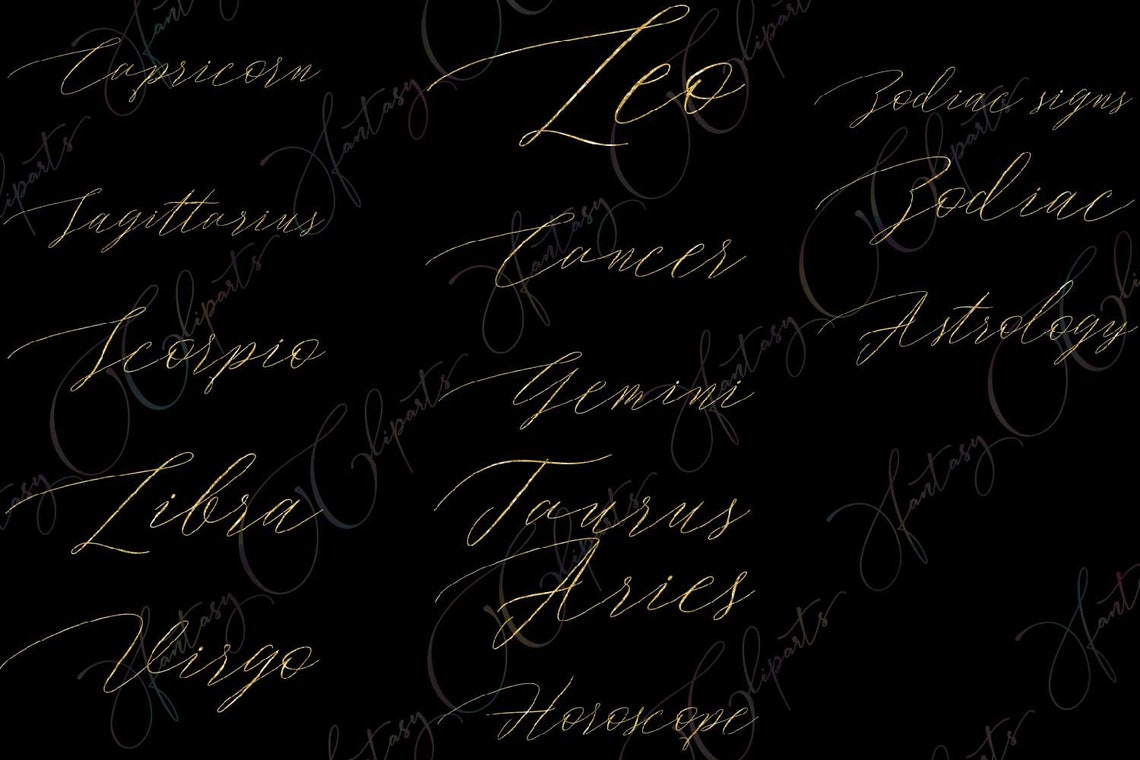 Capricorn
Sagittarius
Scorpio
Libra
Virgo
Leo
Cancer
Gemini
Taurus
Aries
Horoscope
Zodiac signs
Zodiac
Astrology
Fantasy Cliparts